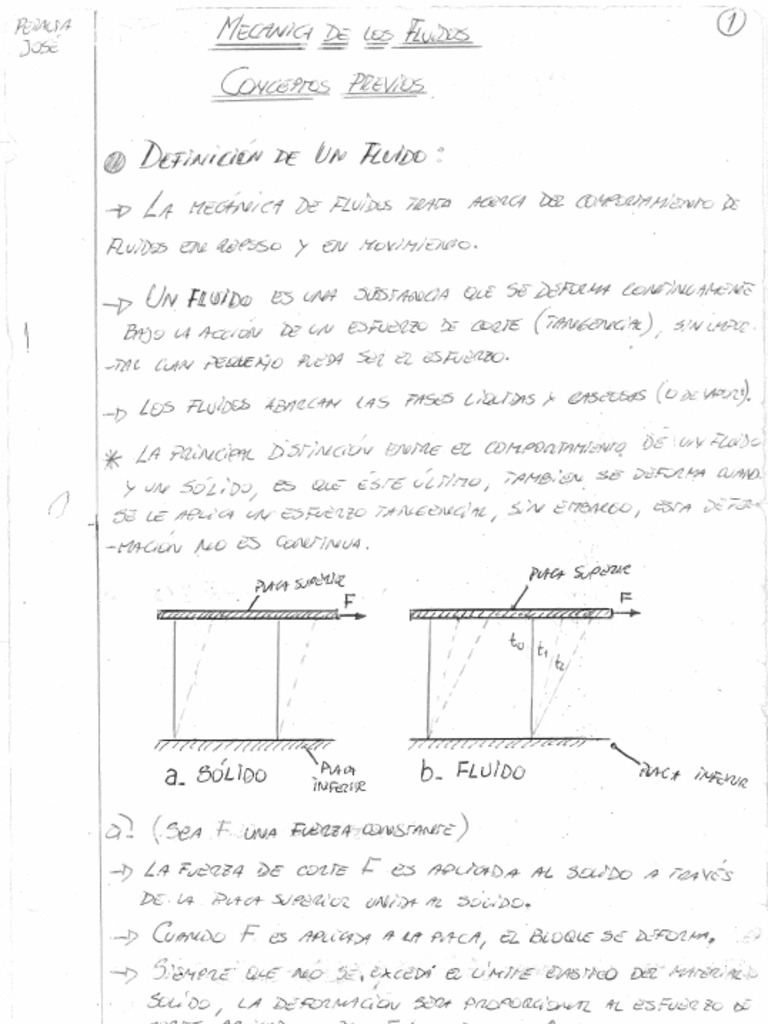 PERALTA
JOSÉ
1
MECANICA DE LOS FLUIDOS
CONCEPTOS PREVIOS
DEFINICIÓN DE UN FLUIDO:
→ LA MECÁNICA DE FLUIDOS TRATA ACERCA DEL COMPORTAMIENTO DE
FLUIDOS EN REPOSO Y EN MOVIMIENTO.
→ UN FLUIDO ES UNA SUBSTANCIA QUE SE DEFORMA CONTINUAMENTE
BAJO LA ACCIÓN DE UN ESFUERZO DE CORTE (TANGENCIAL), SIN IMPOR-
-TAR CUAN PEQUEÑO PUEDA SER EL ESFUERZO.
→ LOS FLUIDOS ABARCAN LAS FASES LÍQUIDAS Y GASEOSAS (O DE VAPOR).
* LA PRINCIPAL DISTINCIÓN ENTRE EL COMPORTAMIENTO DE UN FLUIDO
Y UN SÓLIDO, ES QUE ÉSTE ÚLTIMO, TAMBIEN SE DEFORMA CUANDO
SE LE APLICA UN ESFUERZO TANGENCIAL, SIN EMBARGO, ESTA DEFOR-
-MACIÓN NO ES CONTINUA.
PLACA SUPERIOR
F
PLACA SUPERIOR
F
t0 t1 t2
a- SÓLIDO
PLACA
INFERIOR
b- FLUIDO
PLACA INFERIOR
a- (SEA F UNA FUERZA CONSTANTE)
→ LA FUERZA DE CORTE F ES APLICADA AL SOLIDO A TRAVÉS
DE LA PLACA SUPERIOR UNIDA AL SÓLIDO.
→ CUANDO F ES APLICADA A LA PLACA, EL BLOQUE SE DEFORMA.
→ SIEMPRE QUE NO SE EXCEDA EL LÍMITE ELASTICO DEL MATERIAL
SOLIDO, LA DEFORMACION SERA PROPORCIONAL AL ESFUERZO DE